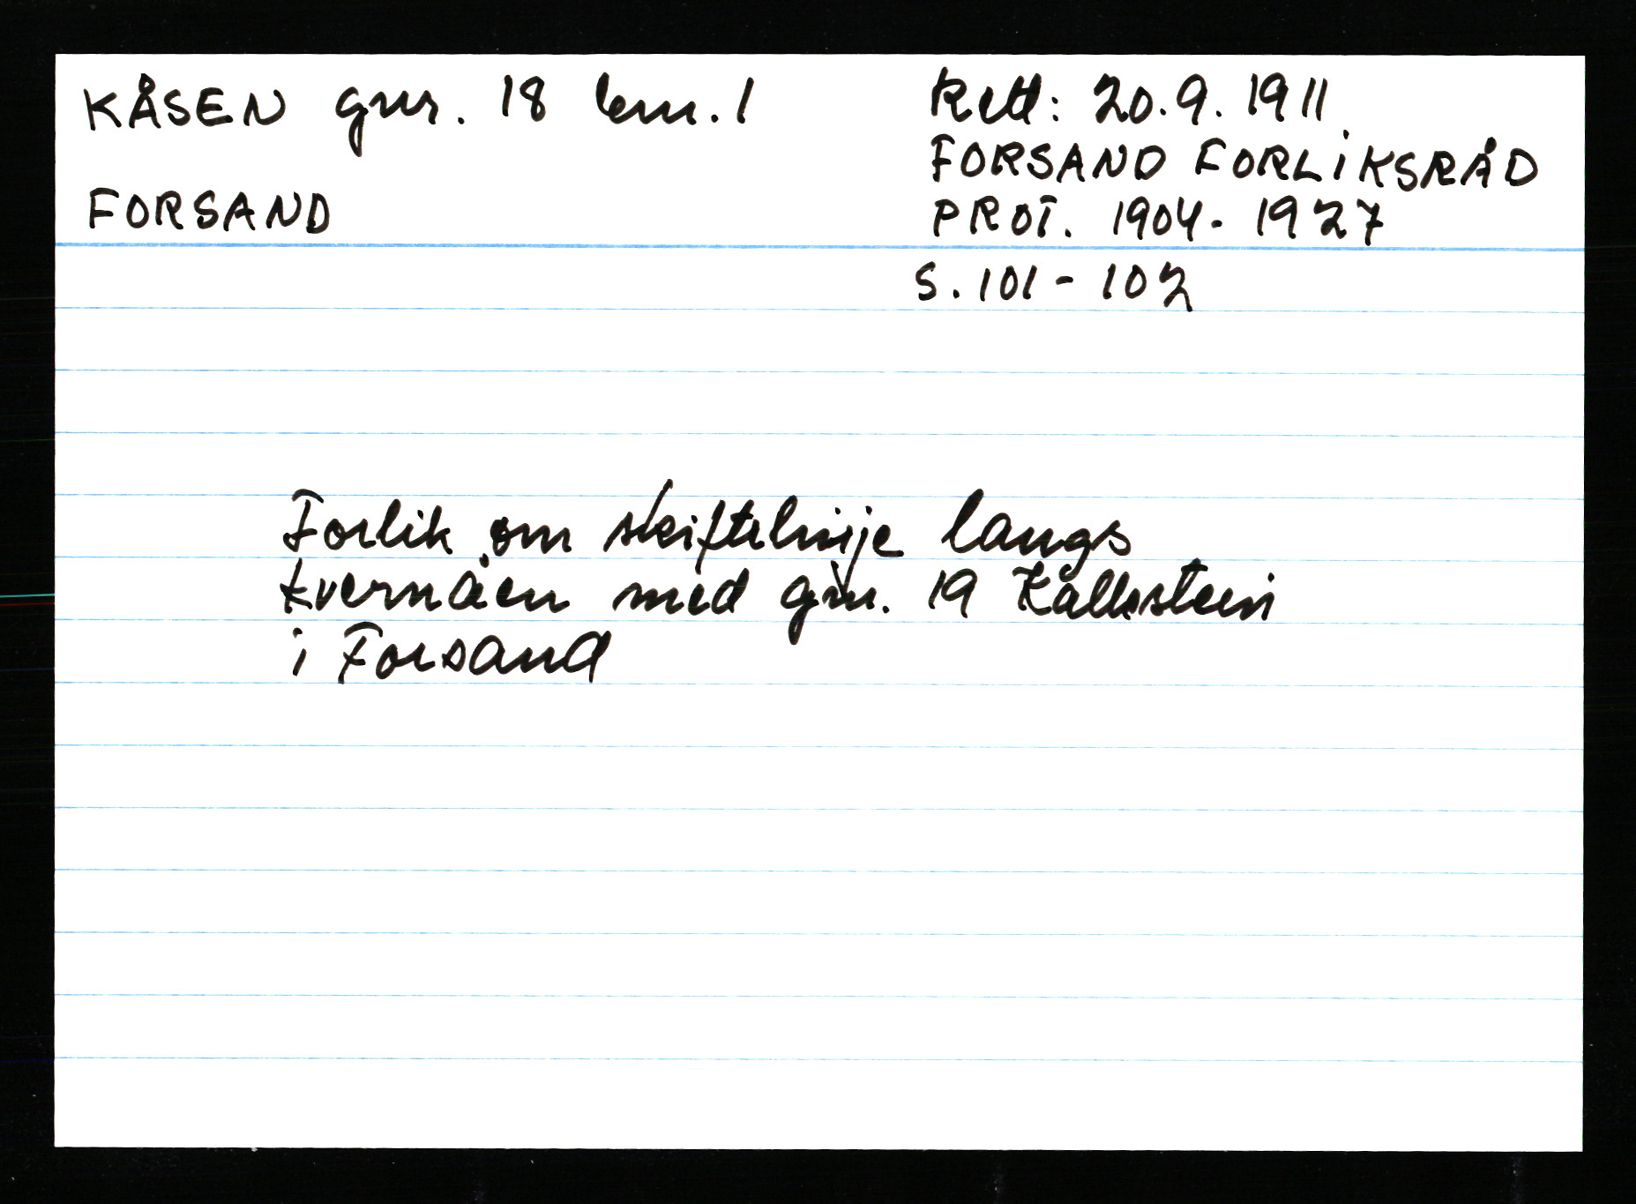 KÅSEN gnr. 18 bnr. 1
FORSAND
Rett: 20.9.1911
FORSAND FORLIKSRÅD
PROT. 1904-1927
S. 101-102
Forlik om skiftelinje langs
kvernåen med gnr. 19 Kallestein
i Forsand